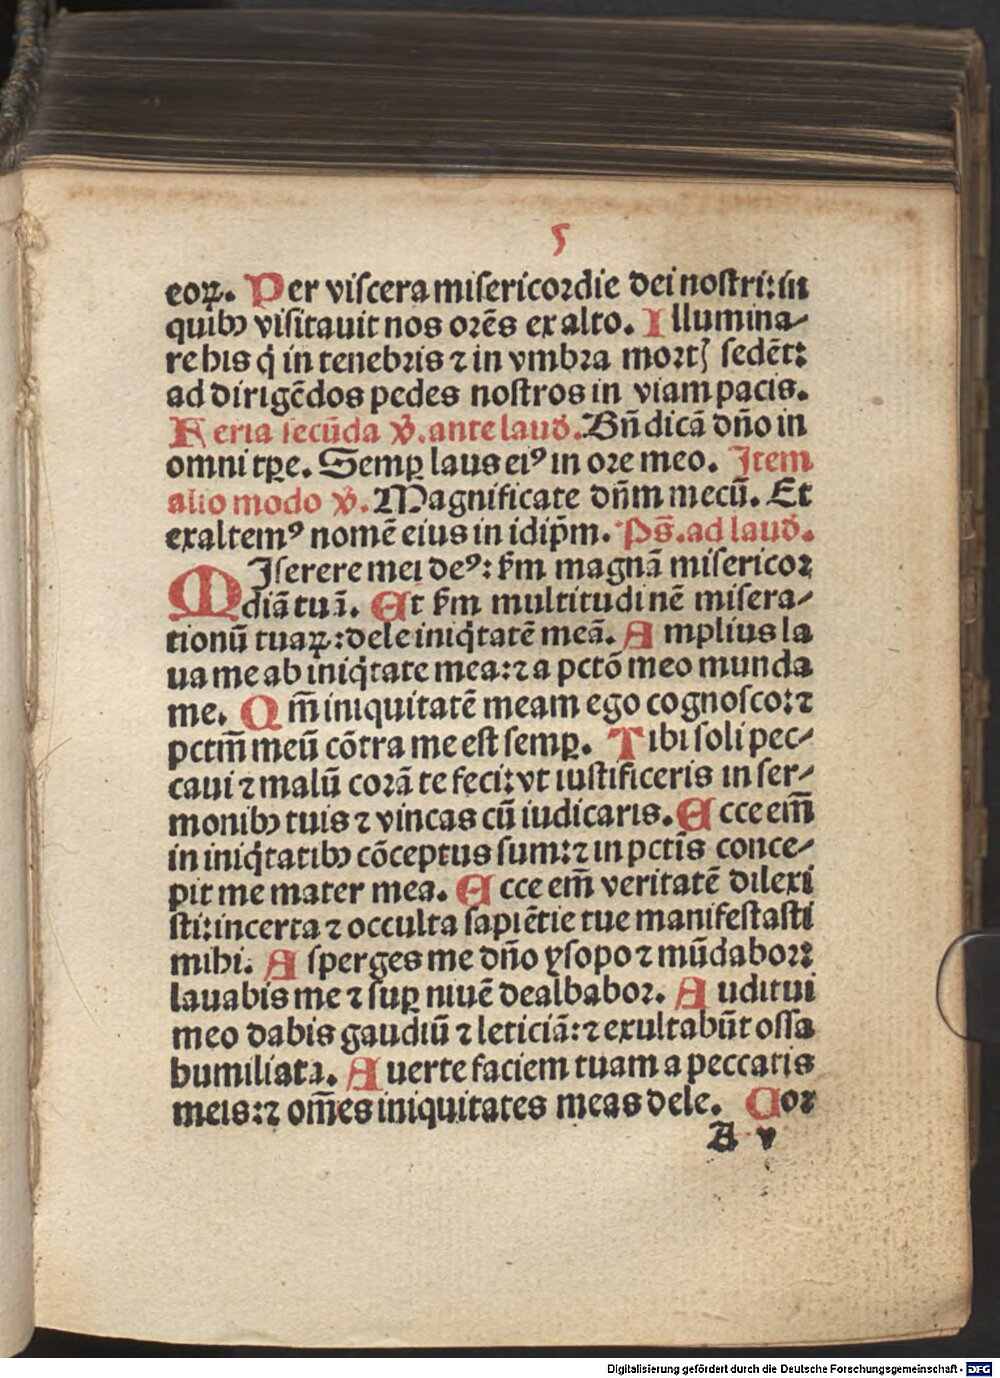 5
eoꝝ. Per viſcera miſericordie dei noſtri: in
quibꝰ viſitauit nos orēs ex alto. Illumina-
re his q̇ in tenebris ⁊ in vmbra mortꝭ ſedēt:
ad dirigēdos pedes noſtros in viam pacis.
Feria ſecūda ℣. ante laud̄. Bn̄dicā dn̄o in
omni tꝑe. Semꝑ laus eiꝰ in ore meo. Item
alio modo ℣. Magnificate dn̄m mecū. Et
exaltemꝰ nomē eius in idip̄m. Ps̄. ad laud̄.
MIſerere mei deꝰ: ẜm magnā miſericor
diā tuā. Et ẜm multitudinē miſera-
tionū tuaꝝ: dele iniq̇tatē meā. Amplius la
ua me ab iniq̇tate mea: ⁊ a pctō meo munda
me. Qm̄ iniquitatē meam ego cognoſco: ⁊
pctm̄ meū cōtra me eſt ſemꝑ. Tibi ſoli pec-
caui ⁊ malū corā te feci: vt iuſtificeris in ſer-
monibꝰ tuis ⁊ vincas cū iudicaris. Ecce em̄
in iniq̇tatibꝰ cōceptus ſum: ⁊ in pctīs conce-
pit me mater mea. Ecce em̄ veritatē dilexi
ſti: incerta ⁊ occulta ſapiētie tue manifeſtaſti
mihi. Aſperges me dn̄o yſopo ⁊ mūdabor:
lauabis me ⁊ ſuꝑ niuē dealbabor. Auditui
meo dabis gaudiū ⁊ leticiā: ⁊ exultabūt oſſa
humiliata. Auerte faciem tuam a peccatis
meis: ⁊ om̄es iniquitates meas dele. Cor
A v
Digitalisierung gefördert durch die Deutsche Forschungsgemeinschaft - DFG